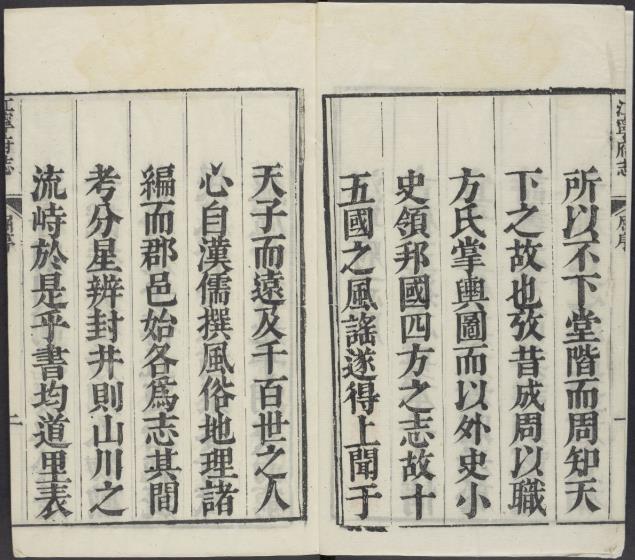 江寧府志
周序
所以不下堂階而周知天
下之故也攷昔成周以職
方氏掌輿圖而以外史小
史領邦國四方之志故十
五國之風謠遂得上聞于
天子而遠及千百世之人
心自漢儒撰風俗地理諸
編而郡邑始各為志其間
考分星辨封井則山川之
流峙於是乎書均道里表
江寧府志
周序
一